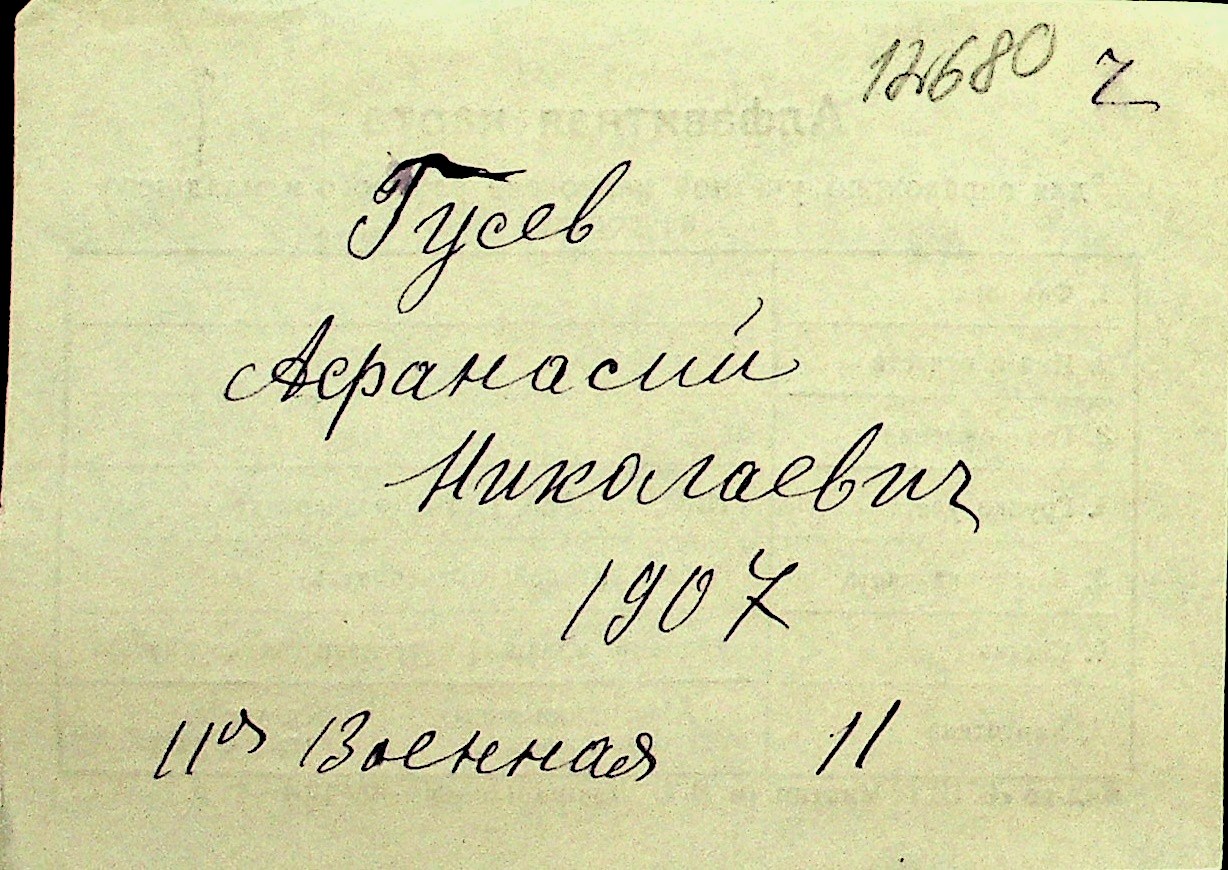 12680 г
Гусев
Афанасий
Николаевич
1907
11ая Военная 11